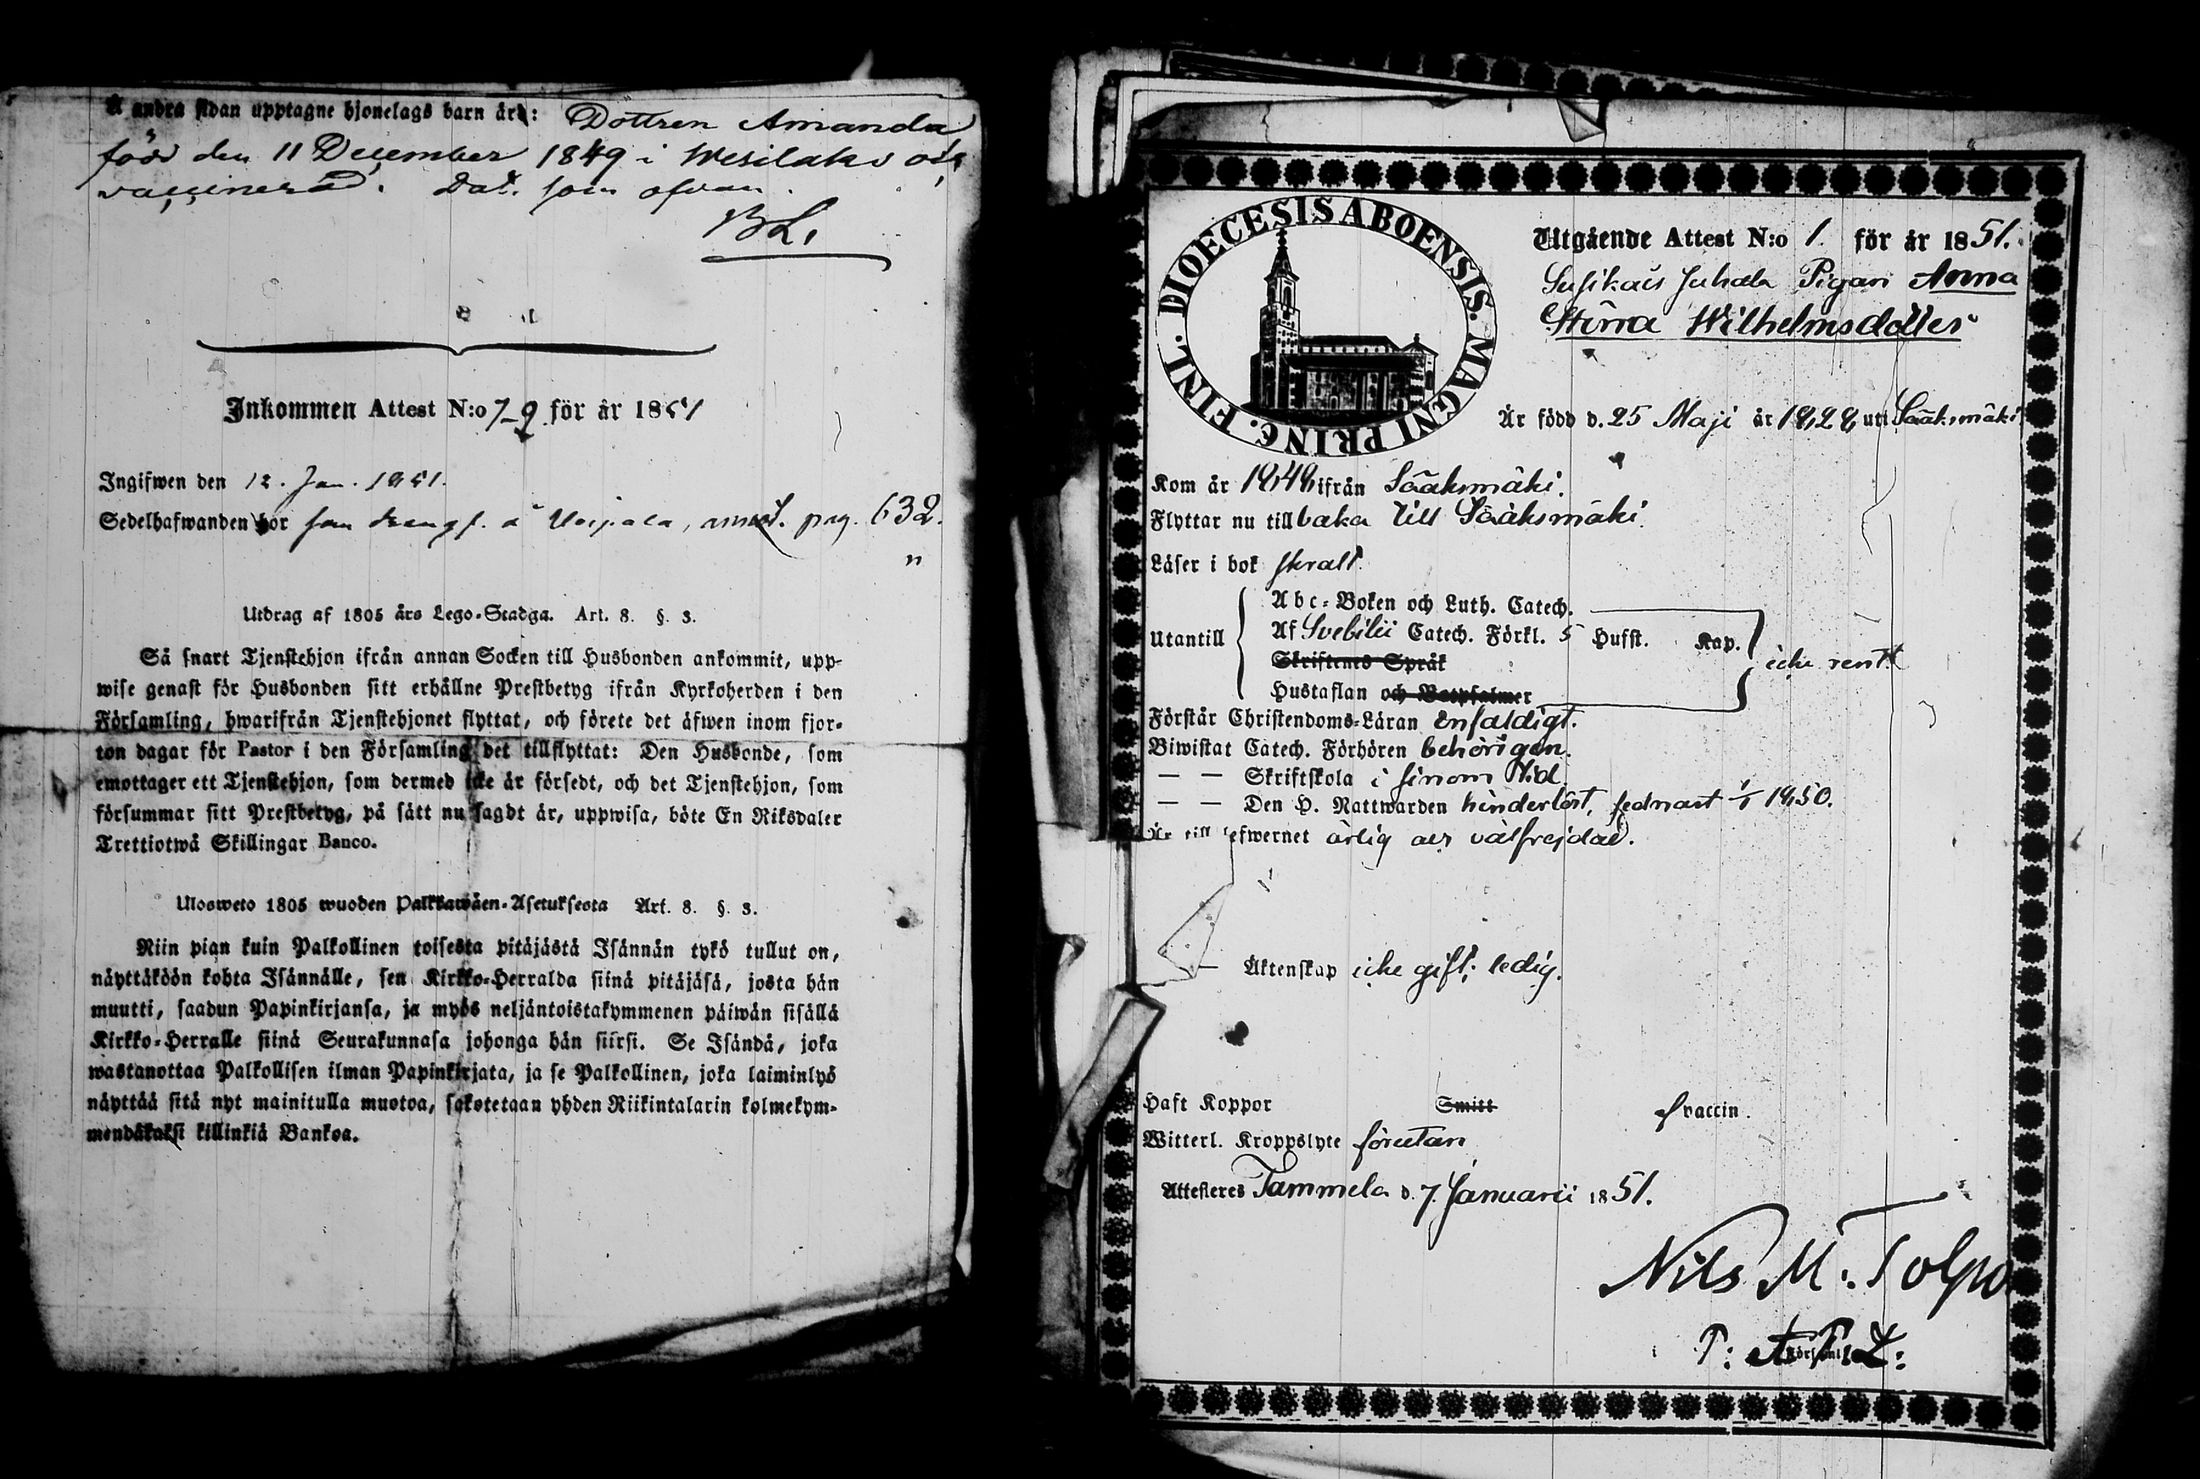 Å andra sidan upptagne hjonelags barn är: Dottren Amanda
född den 11 December 1849 i Wesilaks och
vaccinerad. Dat. som ofvan.
BL.
Inkommen Attest N:o 7_9 för år 1851
Ingifwen den 12. Jan. 1851.
Sedelhafwanden bor som å pag. 632.
Utdrag af 1805 års Lego-Stadga. Art. 8. §. 3.
Så snart Tjenstehjon ifrån annan Socken till Husbonden ankommit, upp-
wise genast för Husbonden sitt erhållne Prestbetyg ifrån Kyrkoherden i den
Församling, hwarifrån Tjenstehjonet flyttat, och förete det äfwen inom fjor-
ton dagar för Pastor i den Församling det tillflyttat: Den Husbonde, som
emottager ett Tjenstehjon, som dermed icke är försedt, och det Tjenstehjon, som
försummar sitt Prestbetyg, på sätt nu sagdt är, uppwisa, böte En Riksdaler
Trettiotwå Skillingar Banco.
Ulosweto 1805 wuoden Palkkawäen-Asetuksesta Art. 8. §. 3.
Niin pian kuin Palkollinen toisesta pitäjästä Isännän tykö tullut on,
näyttäköön kohta Isännälle, sen Kirkko-Herralda siinä pitäjäsä, josta hän
muutti, saadun Papinkirjansa, ja myös neljäntoistakymmenen päiwän sisällä
Kirkko-Herralle siinä Seurakunnasa johonga hän siirsi. Se Isändä, joka
wastanottaa Palkollisen ilman Papinkirjata, ja se Palkollinen, joka laiminlyö
näyttää sitä nyt mainitulla muotoa, sakotetaan yhden Riikintalarin kolmekym-
mendäkaksi killinkiä Bankoa.
DIOECESIS ABOENSIS. MAGNI PRINC. FINL.
Utgående Attest N:o 1. för år 1851.
Juhala Pigan Anna
Stina Wilhelmsdotter
Är född d. 25 Maji år 1828, uti Sääksmäki
Kom år 1848, ifrån Sääksmäki.
Flyttar nu tillbaka till Sääksmäki.
Läser i bok svalt.
Abc-Boken och Luth. Catech.
Utantill Af Svebilii Catech. Förkl. 5 Hufst. Kap. icke rent
Skriftenes Språk
Hustaflan och Botpsalmer
Förstår Christendoms-Läran enfaldigt.
Biwistat Catech. Förhören behörigen.
— — Skriftskola i sinom tid.
— — Den H. Nattwarden hinderlöst, sednast 1/1 1850.
Är till lefwernet ärlig och välfrejdad.
— Äktenskap icke gift; ledig.
Haft Koppor Smitt vaccin.
Witterl. Kroppslyte förutan
Attesteras Tammela d. 7. Januarii 1851.
Nils M. Tolpo